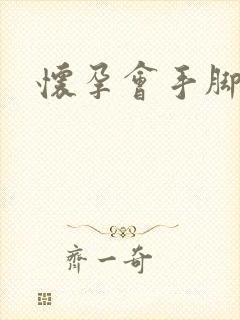 懷孕會手脚
齊一奇